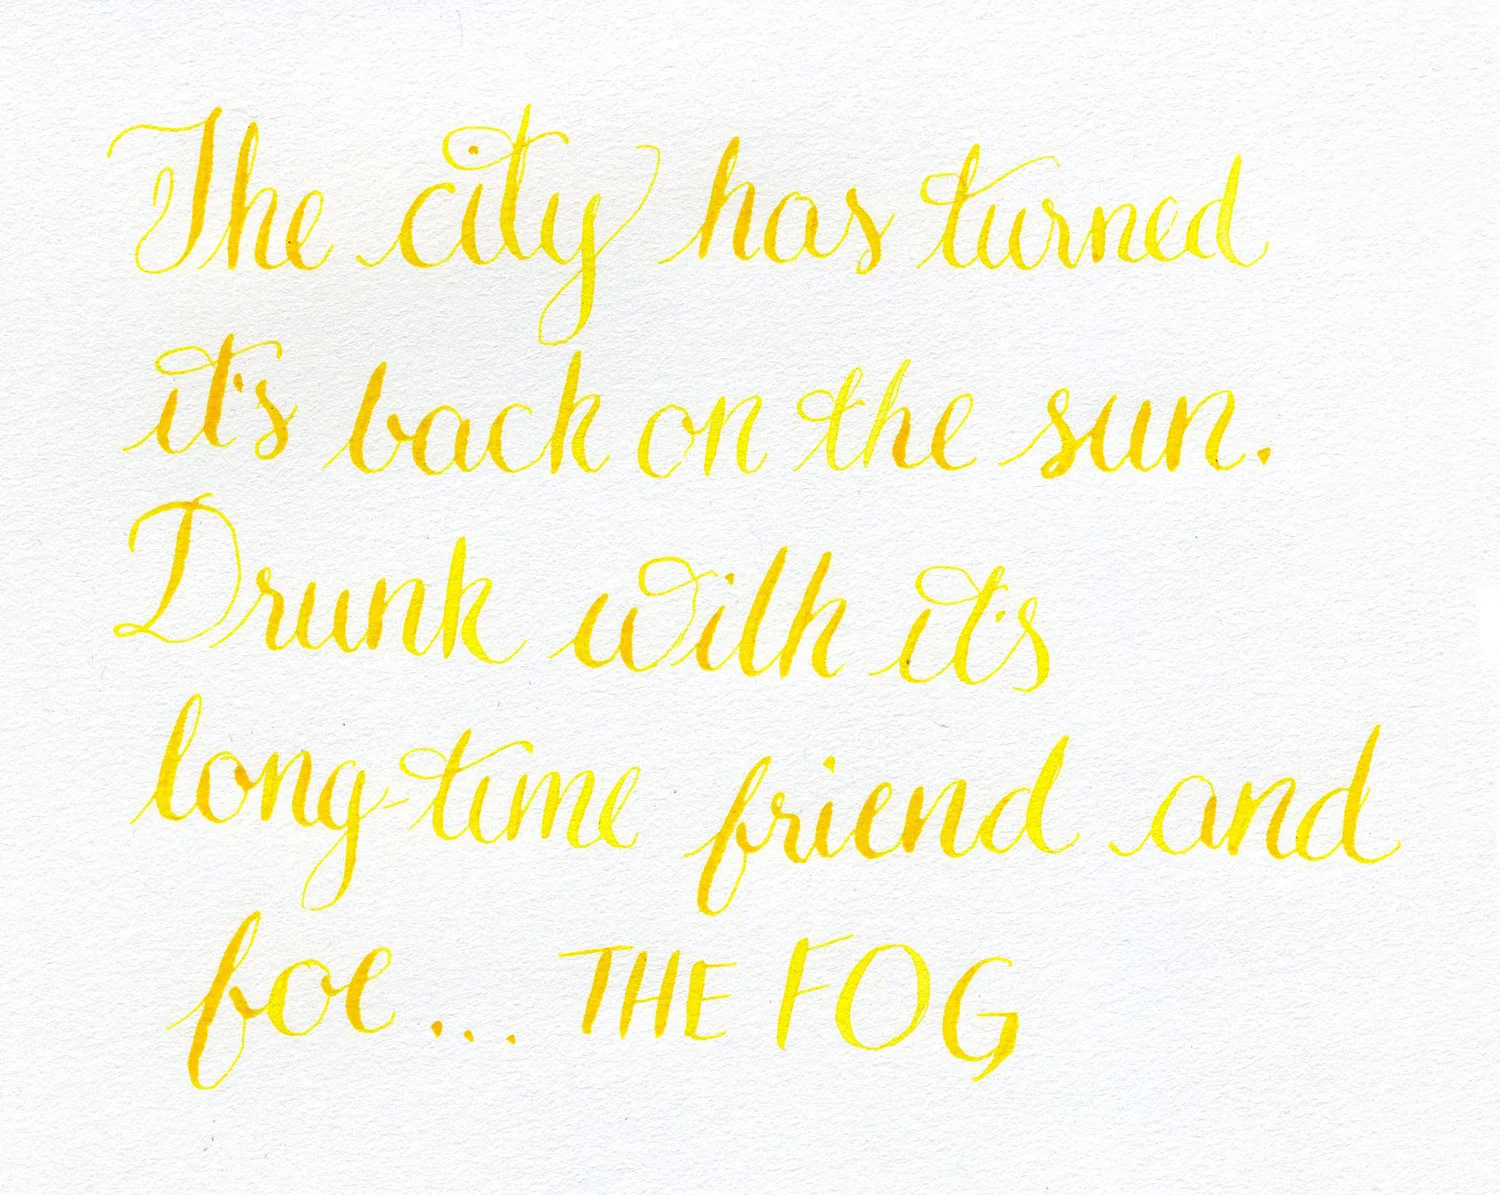 The city has turned
it's back on the sun.
Drunk with it's
long-time friend and
foe... THE FOG